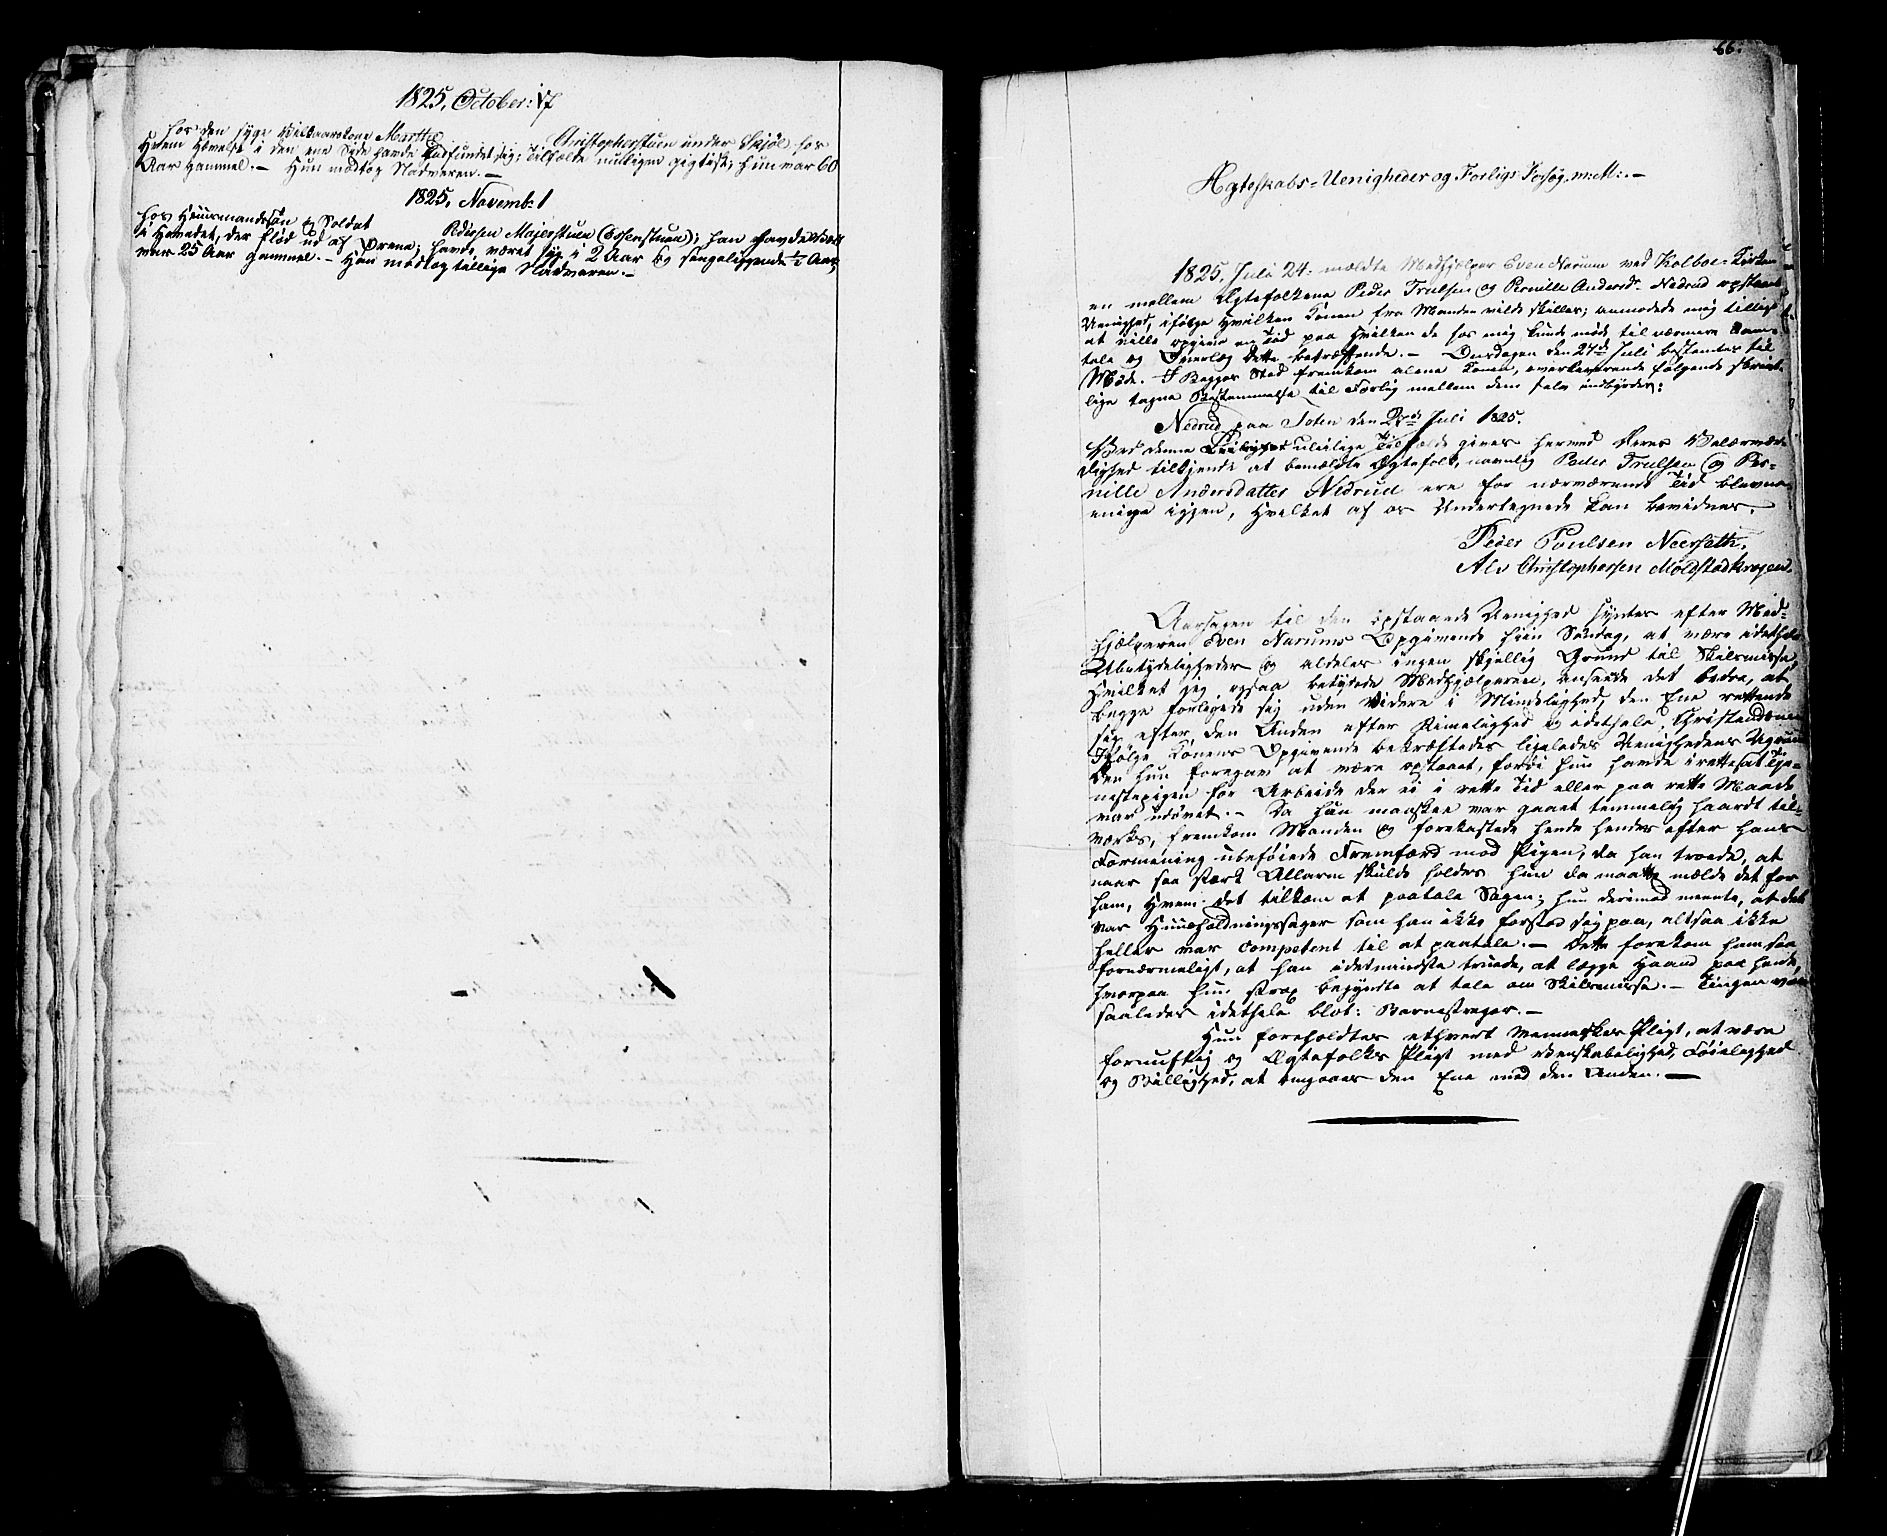 1825, October: 17
hos den syge Vilkaarskone Marthe Christophersstuen under Skjøl for
Hvem Hævelse i den ene Side havde indfundet sig; Tilfældet muligen gigtisk; hun var 60
Aar gammel. — Hun modtog Nadveren. —
1825, Novemb: 1
hos Huusmandssøn og Soldat Pedersen Majerstuen (Essenstuen); han havde
i Hovedet, der flød ud af Ørene; havde været syg i 2 Aar og sengeliggende 1/2 Aar,
var 25 Aar gammel. — Han modtog tillige Nadveren. —
66.
Ægteskabs-Uenigheder og Forligs Forsøg, m: M:. —
1825, Juli 24: mældte Medhjelper Even Narum ved Kolboe-Kirken
en mellem Ægtefolkene Peder Trulsen og Pernille Andersd: Nedrud opstaaet
Uenighed, ifølge hvilken Konen fra Manden vilde skilles; anmodede mig tillige
at ville opgive en Tid paa hvilken de for mig kunde møde til nærmere Sam-
tale og Overlæg dette betræffende. — Onsdagen den 27de Juli bestemtes til
Møde. I Begges Sted fremkom alene Konen, overleverende følgende skrivt-
lige tagne Bestemmelse til Forlig mellem dem selv indbyrdes:
Nedrud paa Toten den Juli 1825.
Ved denne Leilighed Tilfælde gives herved Deres Velærvær-
dighed tilkjende at bemældte Ægtefolk, navnlig Peder Trulsen og Per-
nille Andersdatter Nedrud ere for nærværende Tid blevne
enige igjen, hvilket af os Undertegnede kan bevidnes.
Peder Poulsen Neerseth.
Alv Christophersen Møldstadkregen.
Aarsagen til den opstaaede Uenighed syntes efter Med-
hjælperen Even Narums Opgivende hiin Søndag, at være idethele
Ubetydeligheder og aldeles ingen skjellig Grund til Skilsmisse,
hvilket jeg ogsaa betydede Medhjælperen, ansende det bedre, at
begge forligede sig uden Videre i Mindelighed, den Ene rettende
sig efter den Anden efter Rimelighed og idethele Christendommen
Ifølge Konens Opgivende bekræftedes ligeledes Uenighedens Ugrund
den hun foregav at være opstaaet, fordi hun havde irettesat Tje-
nestepigen for Arbeide der ei i rette Tid eller paa rette Maade
var udøvet. — Da hun maaskee var gaaet temmelig haardt til-
værks, fremkom Manden og forekastede hende hendes efter hans
Formening ubeføiede Fremfærd mod Pigen, da han troede, at
naar saa stærk Allarm skulde holdes hun da maatte mælde det for
ham, hvem det tilkom at paatale Sagen; hun derimod meente, at det
var Huusholdningssager som han ikke forstod sig paa, altsaa ikke
heller var competent til at paatale. — Dette forekom ham saa
fornærmeligt, at han idetmindste truede, at lægge Haand paa hende,
hvorpaa hun strax begyndte at tale om Skilsmisse. — Tingen var
saaledes idethele blot: Barnestreger. —
Hun foreholdtes ethvert Menneskes Pligt, at være
fornuftig og Ægtefolks Pligt med Venskabelighed, Føielighed
og Billighed, at omgaaes den Ene med den Anden. —